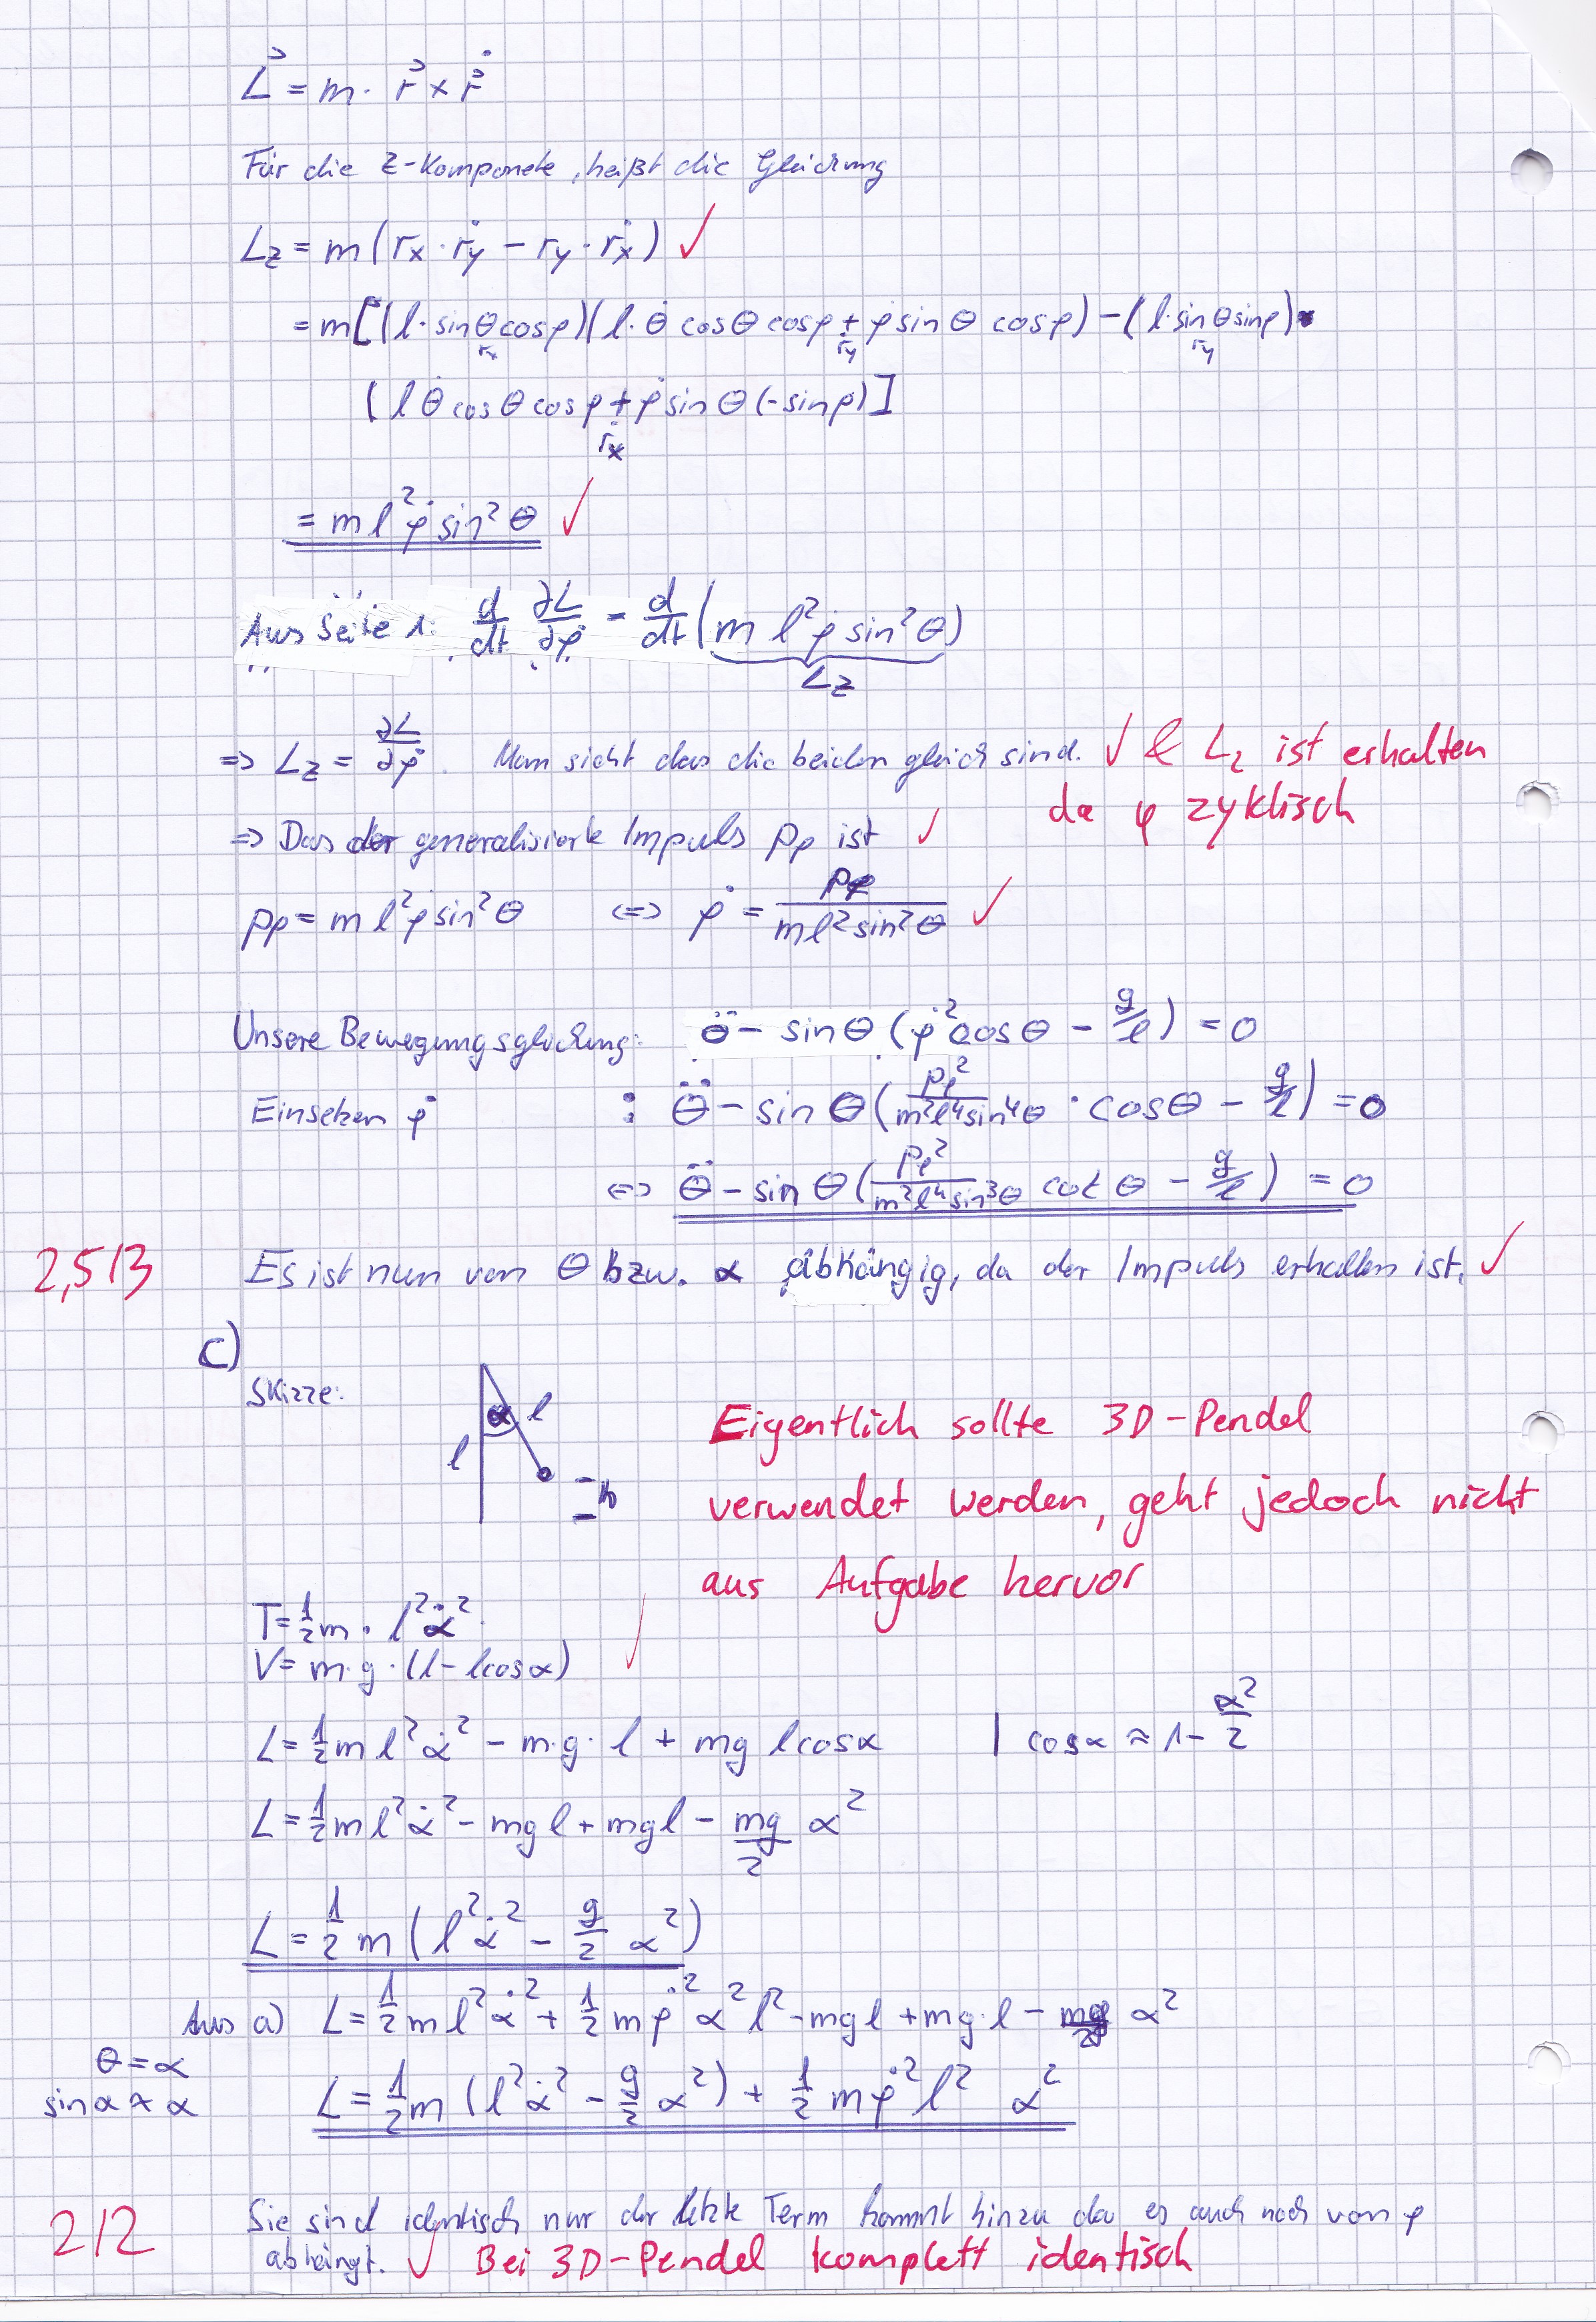 L⃗ = m · r⃗ × ṙ⃗
Für die z-Komponete, heißt die Gleichung
L_z = m (r_x · ṙ_y − r_y · ṙ_x) ✓
= m [(l · sinθ cosφ)(l · θ̇ cosθ cosφ + φ̇ sinθ cosφ) − (l · sinθ sinφ) ·
r_x ṙ_y r_y
(l θ̇ cosθ cosφ + φ̇ sinθ (−sinφ)]
ṙ_x
= m l² φ̇ sin²θ ✓
Aus Seite 1: d/dt ∂L/∂φ̇ = d/dt (m l² φ̇ sin²θ)
L_z
=> L_z = ∂L/∂φ̇ . Man sieht das die beiden gleich sind. ✓ & L_z ist erhalten
da φ zyklisch
=> Das der generalisierte Impuls p_φ ist ✓
p_φ = m l² φ̇ sin²θ <=> φ̇ = p_φ / (m l² sin²θ) ✓
Unsere Bewegungsgleichung: θ̈ − sinθ (φ̇² cosθ − g/l) = 0
Einsetzen φ̇ : θ̈ − sinθ (p_φ² / (m² l⁴ sin⁴θ) · cosθ − g/l) = 0
<=> θ̈ − sinθ (p_φ² / (m² l⁴ sin³θ) cot θ − g/l) = 0
2,5/3 Es ist nun von θ bzw. α abhängig, da der Impuls erhalten ist. ✓
c)
Skizze:
α l
l
h
Eigentlich sollte 3D-Pendel
verwendet werden, geht jedoch nicht
aus Aufgabe hervor
T = ½ m · l² α̇²
V = m · g · (l − l cosα) ✓
L = ½ m l² α̇² − m · g · l + m g l cosα | cosα ≈ 1 − α²/2
L = ½ m l² α̇² − m g l + m g l − mg/2 α²
L = ½ m (l² α̇² − g/2 α²)
Aus a) L = ½ m l² α̇² + ½ m φ̇² α² l² − m g l + m g · l − mg/2 α²
θ = α
sin α ≈ α
L = ½ m (l² α̇² − g/2 α²) + ½ m φ̇² l² α²
2/2 Sie sind identisch nur der letzte Term kommt hinzu da es auch noch von φ
abhängt. ✓ Bei 3D-Pendel komplett identisch